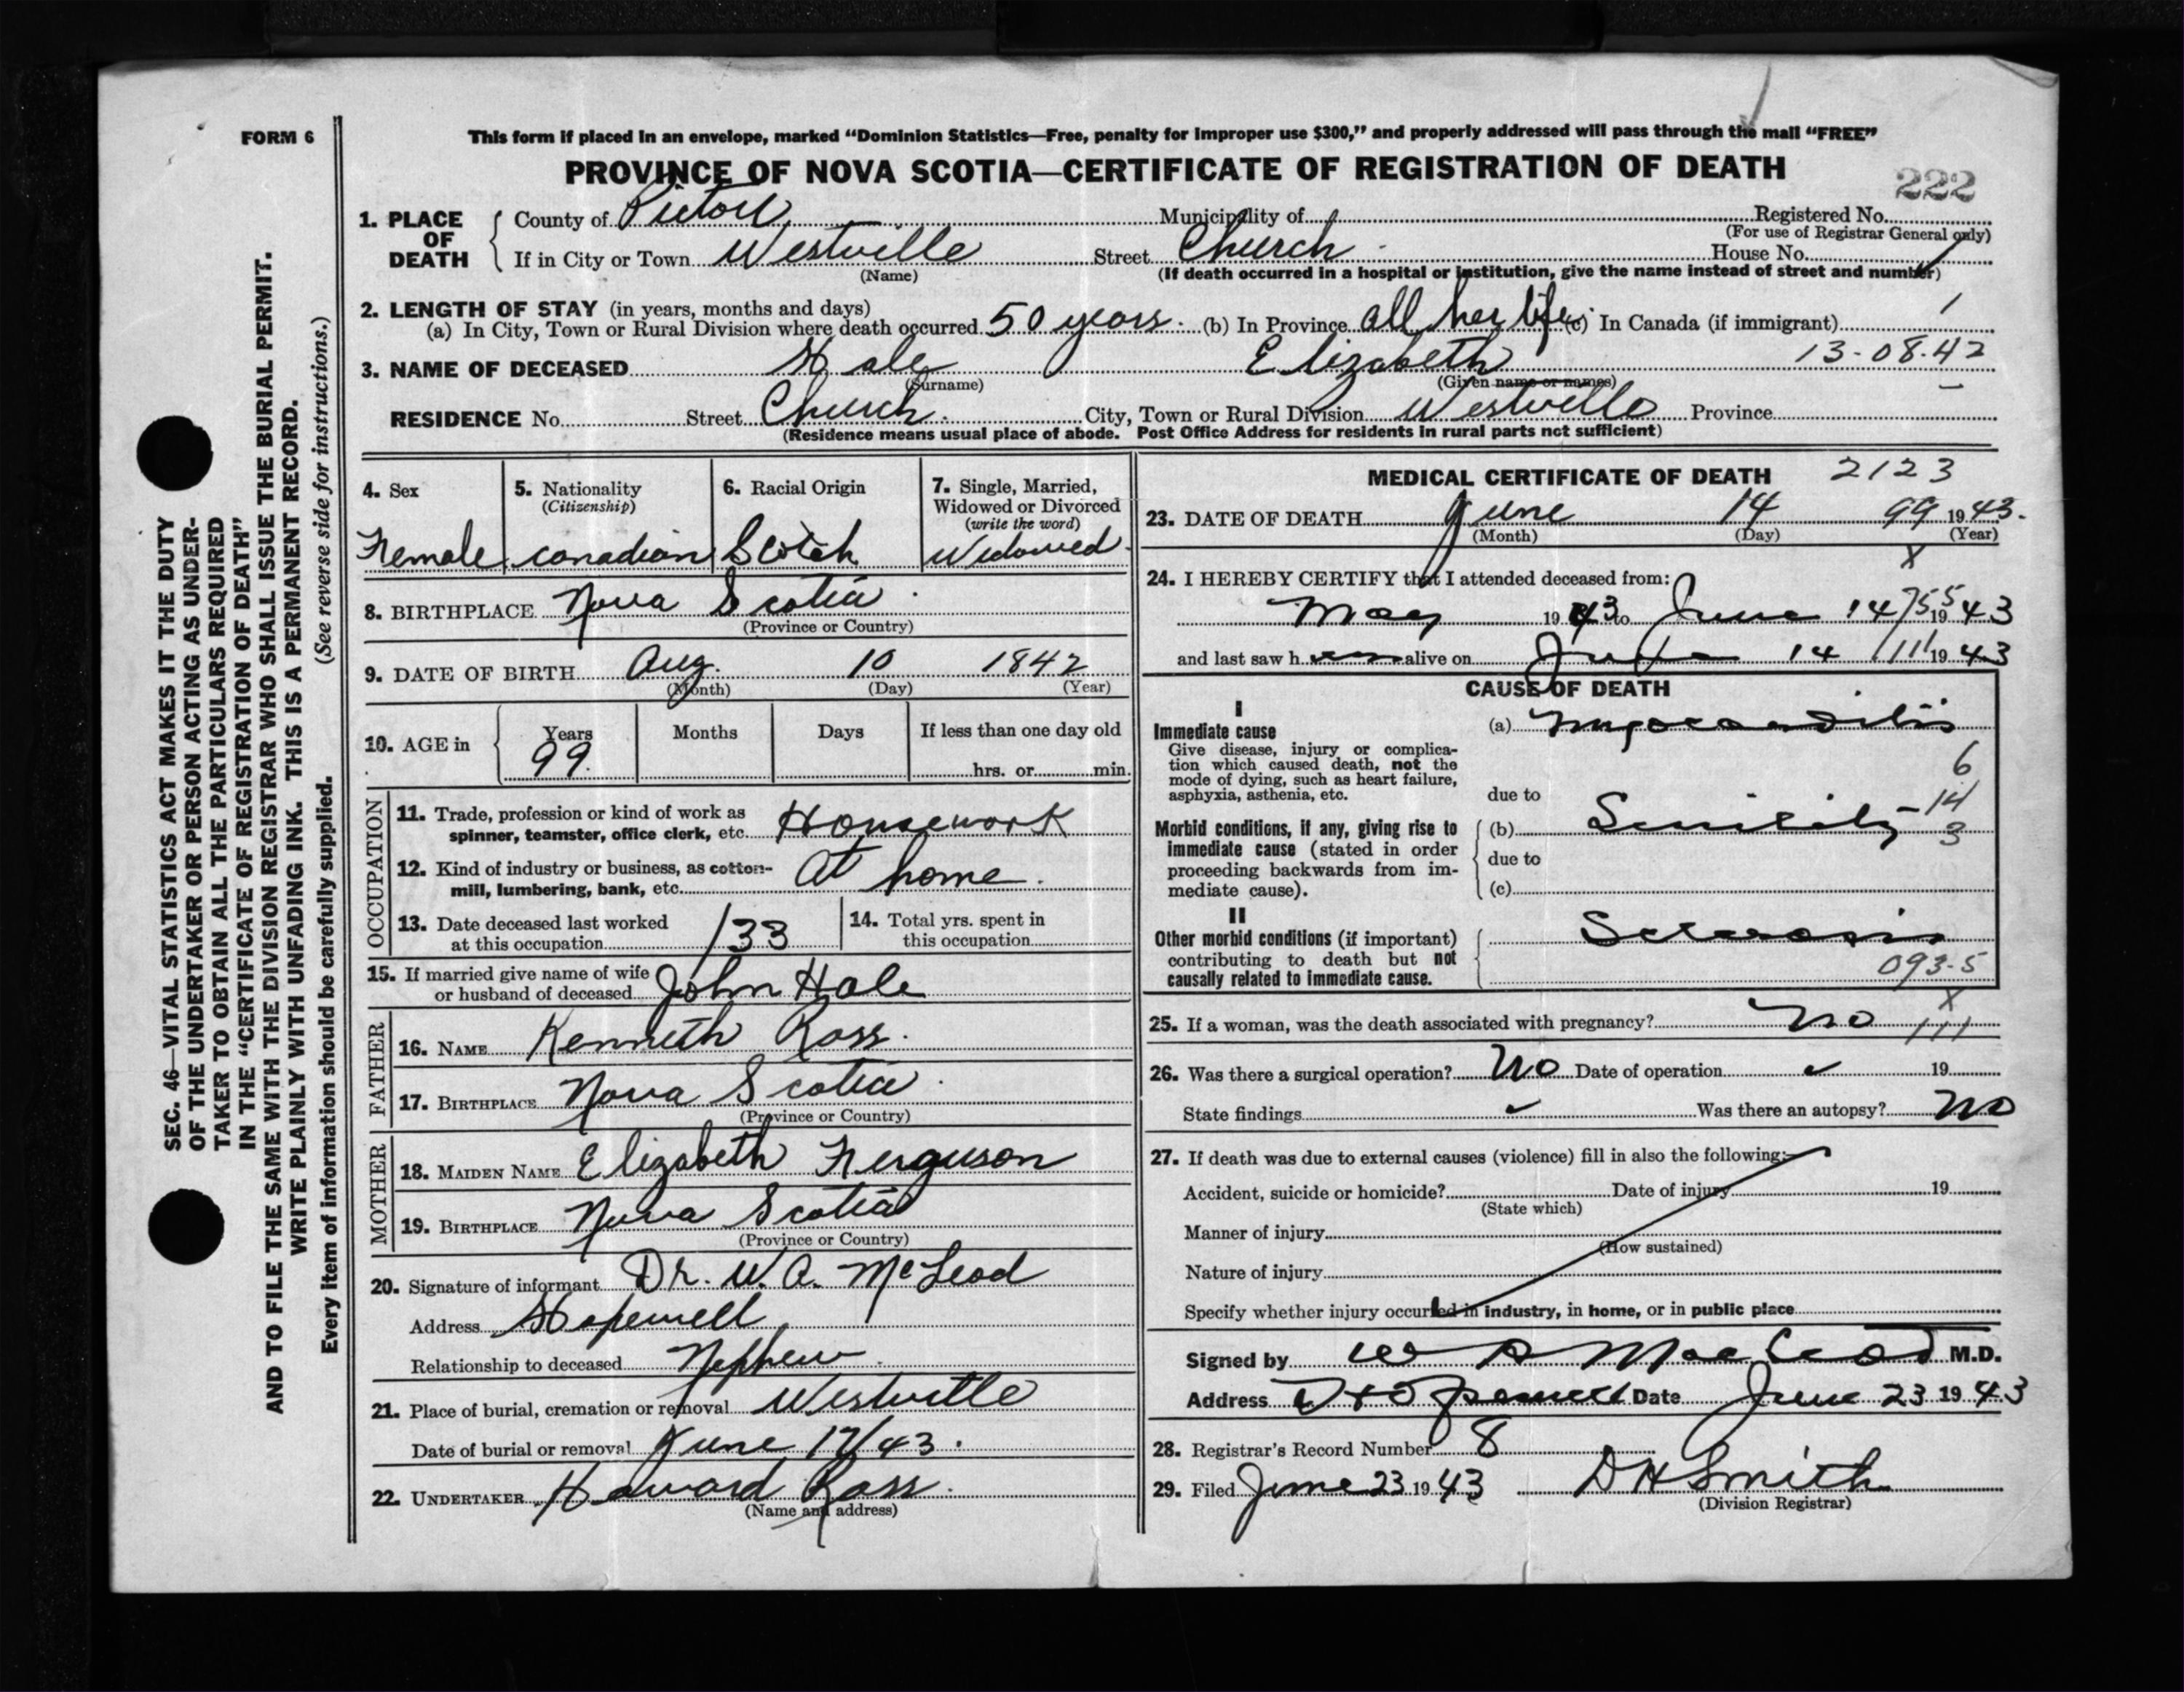 FORM 6
This form if placed in an envelope, marked "Dominion Statistics—Free, penalty for improper use $300," and properly addressed will pass through the mail "FREE"
PROVINCE OF NOVA SCOTIA—CERTIFICATE OF REGISTRATION OF DEATH
222
1. PLACE OF DEATH
County of Pictou Municipality of Registered No.
(For use of Registrar General only)
If in City or Town Westville Street Church House No.
(Name) (If death occurred in a hospital or institution, give the name instead of street and number)
2. LENGTH OF STAY (in years, months and days)
(a) In City, Town or Rural Division where death occurred 50 years. (b) In Province all her life (c) In Canada (if immigrant)
1
3. NAME OF DECEASED Hale Elizabeth 13-08-42
(Surname) (Given name or names)
RESIDENCE No. Street Church. City, Town or Rural Division Westville Province
(Residence means usual place of abode. Post Office Address for residents in rural parts not sufficient)
SEC. 46—VITAL STATISTICS ACT MAKES IT THE DUTY
OF THE UNDERTAKER OR PERSON ACTING AS UNDER-
TAKER TO OBTAIN ALL THE PARTICULARS REQUIRED
IN THE "CERTIFICATE OF REGISTRATION OF DEATH"
AND TO FILE THE SAME WITH THE DIVISION REGISTRAR WHO SHALL ISSUE THE BURIAL PERMIT.
WRITE PLAINLY WITH UNFADING INK. THIS IS A PERMANENT RECORD.
Every item of information should be carefully supplied. (See reverse side for instructions.)
4. Sex 5. Nationality 6. Racial Origin 7. Single, Married,
(Citizenship) Widowed or Divorced
(write the word)
Female canadian Scotch Widowed
8. BIRTHPLACE Nova Scotia
(Province or Country)
9. DATE OF BIRTH Aug. 10 1842
(Month) (Day) (Year)
10. AGE in Years Months Days If less than one day old
99 hrs. or min.
OCCUPATION
11. Trade, profession or kind of work as
spinner, teamster, office clerk, etc. Housework
12. Kind of industry or business, as cotton-
mill, lumbering, bank, etc. At home.
13. Date deceased last worked 14. Total yrs. spent in
at this occupation /33 this occupation
15. If married give name of wife
or husband of deceased John Hale
FATHER
16. NAME Kenneth Ross.
17. BIRTHPLACE Nova Scotia
(Province or Country)
MOTHER
18. MAIDEN NAME Elizabeth Ferguson
19. BIRTHPLACE Nova Scotia
(Province or Country)
20. Signature of informant Dr. W. A. McLeod
Address Hopewell
Relationship to deceased Nephew
21. Place of burial, cremation or removal Westville
Date of burial or removal June 17/43.
22. UNDERTAKER Howard Ross.
(Name and address)
MEDICAL CERTIFICATE OF DEATH 2123
23. DATE OF DEATH June 14 99 1943.
(Month) (Day) (Year)
x
24. I HEREBY CERTIFY that I attended deceased from:
May 1943 to June 14 1943
and last saw h er alive on June 14 1943
CAUSE OF DEATH
I
Immediate cause (a) Myocarditis
Give disease, injury or complica-
tion which caused death, not the
mode of dying, such as heart failure,
asphyxia, asthenia, etc. due to
6
14
3
Morbid conditions, if any, giving rise to (b) Senility
immediate cause (stated in order due to
proceeding backwards from im-
mediate cause). (c)
II
Other morbid conditions (if important) Sclerosis
contributing to death but not
causally related to immediate cause. 093-5
x
25. If a woman, was the death associated with pregnancy? no 111
26. Was there a surgical operation? No Date of operation 19
State findings Was there an autopsy? No
27. If death was due to external causes (violence) fill in also the following:
Accident, suicide or homicide? Date of injury 19
(State which)
Manner of injury
(How sustained)
Nature of injury
Specify whether injury occurred in industry, in home, or in public place
Signed by W A MacLeod M.D.
Address Hopewell Date June 23 1943
28. Registrar's Record Number 8
29. Filed June 23 1943 D H Smith
(Division Registrar)